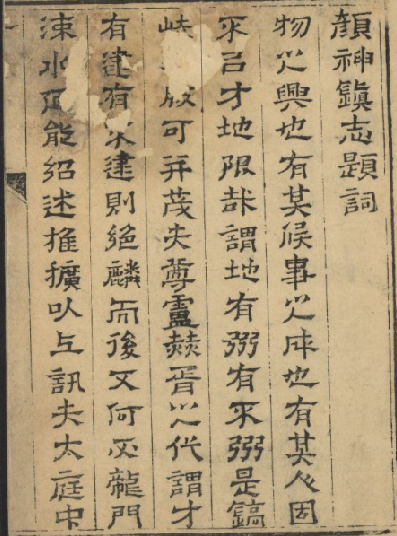 顏神鎮志題詞
物之興也有其候事之成也有其人因
不㠯才地限哉謂地有弼有不弼是鎬
可并茂夫尊盧赫胥之代謂才
有逮有不逮則絕麟而後又何必龍門
涑水能紹述推擴以訊夫大庭中